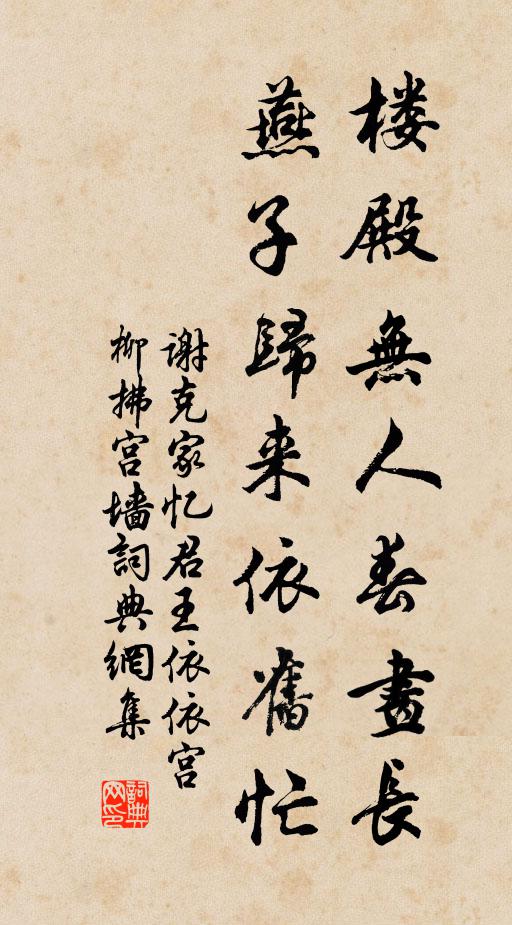 楼殿無人春晝長
燕子歸来依舊忙
謝克家忆君王依依宫
柳拂宫墻詞典網集
詞典
网印